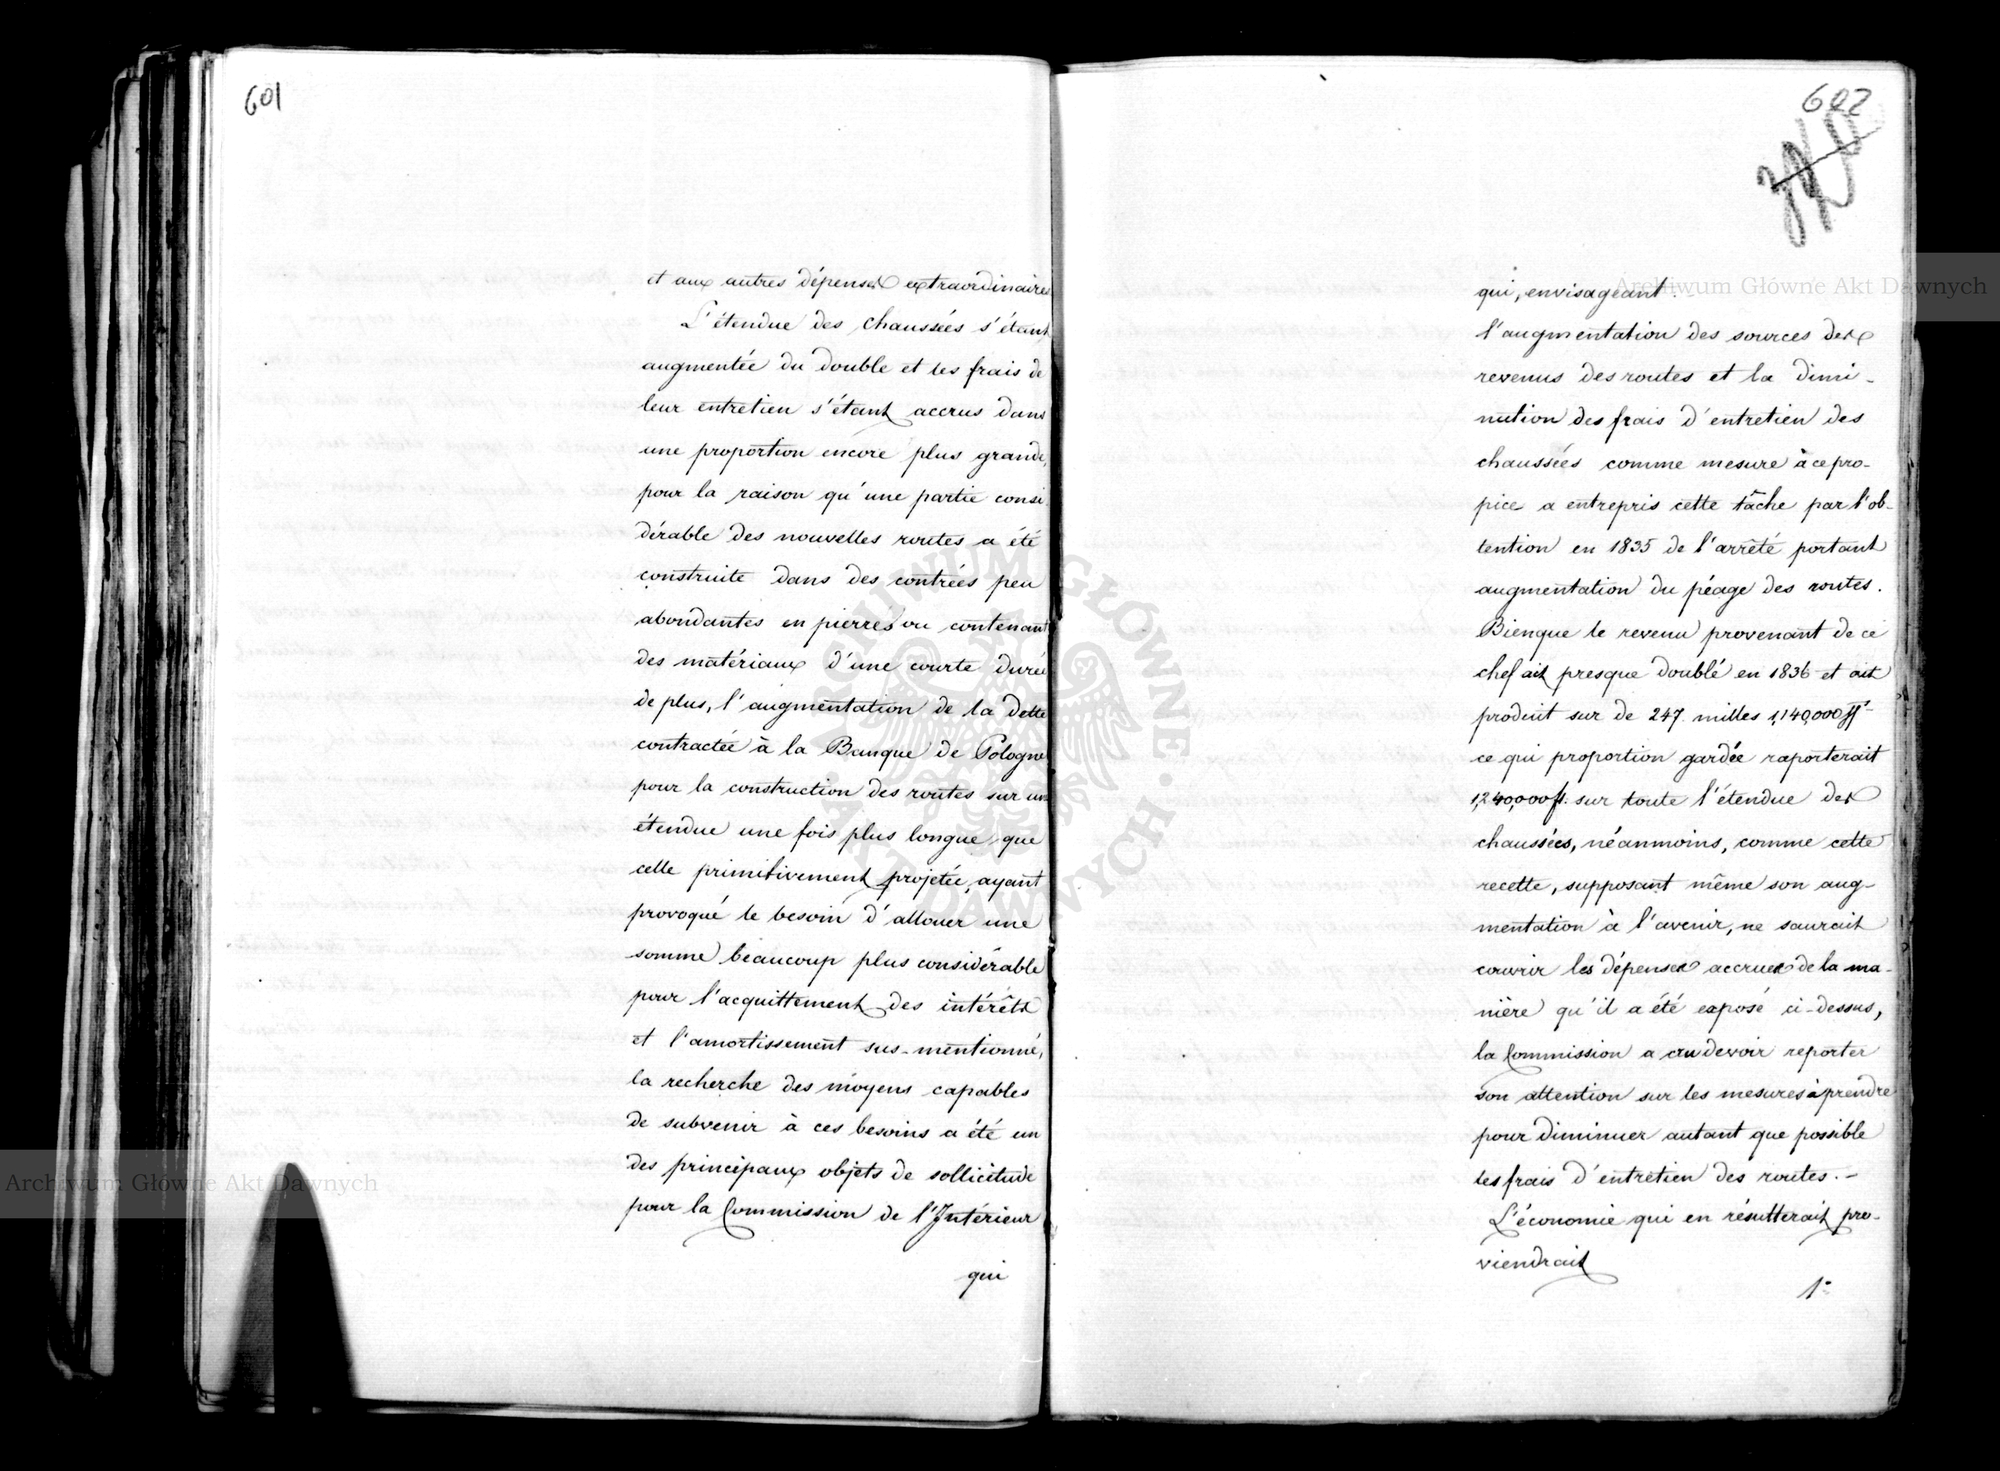 601
et aux autres dépenses extraordinaires
L'étendue des chaussées s'étant
augmentée du double et les frais de
leur entretien s'étant accrus dans
une proportion encore plus grande,
pour la raison qu'une partie consi
dérable des nouvelles routes a été
construite dans des contrées peu
abondantes en pierres ou contenant
des matériaux d'une courte durée
de plus, l'augmentation de la dette
contractée à la Banque de Pologne
pour la construction des routes sur une
étendue une fois plus longue que
celle primitivement projetée, ayant
provoqué le besoin d'allouer une
somme beaucoup plus considérable
pour l'acquittement des intérêts
et l'amortissement sus-mentionné,
la recherche des moyens capables
de subvenir à ces besoins a été un
des principaux objets de sollicitude
pour la Commission de l'Intérieur
qui
602
qui, envisageant
l'augmentation des sources des
revenus des routes et la dimi-
nution des frais d'entretien des
chaussées comme mesure à ce pro-
pice a entrepris cette tâche par l'ob-
tention en 1835 de l'arrêté portant
augmentation du péage des routes.
Bienque le revenu provenant de ce
chef ait presque doublé en 1836 et ait
produit sur de 247. milles 1,140,000 ff
ce qui proportion gardée raporterait
1,240,000 fl. sur toute l'étendue des
chaussées, néanmoins, comme cette
recette, supposant même son aug-
mentation à l'avenir, ne saurait
couvrir les dépenses accrues de la ma-
nière qu'il a été exposé ci-dessus,
la Commission a cru devoir reporter
son attention sur les mesures à prendre
pour diminuer autant que possible
les frais d'entretien des routes.-
L'économie qui en résulterait pro-
viendrait
1°
Archiwum Główne Akt Dawnych
Archiwum Główne Akt Dawnych
ARCHIWUM GŁÓWNE AKT DAWNYCH